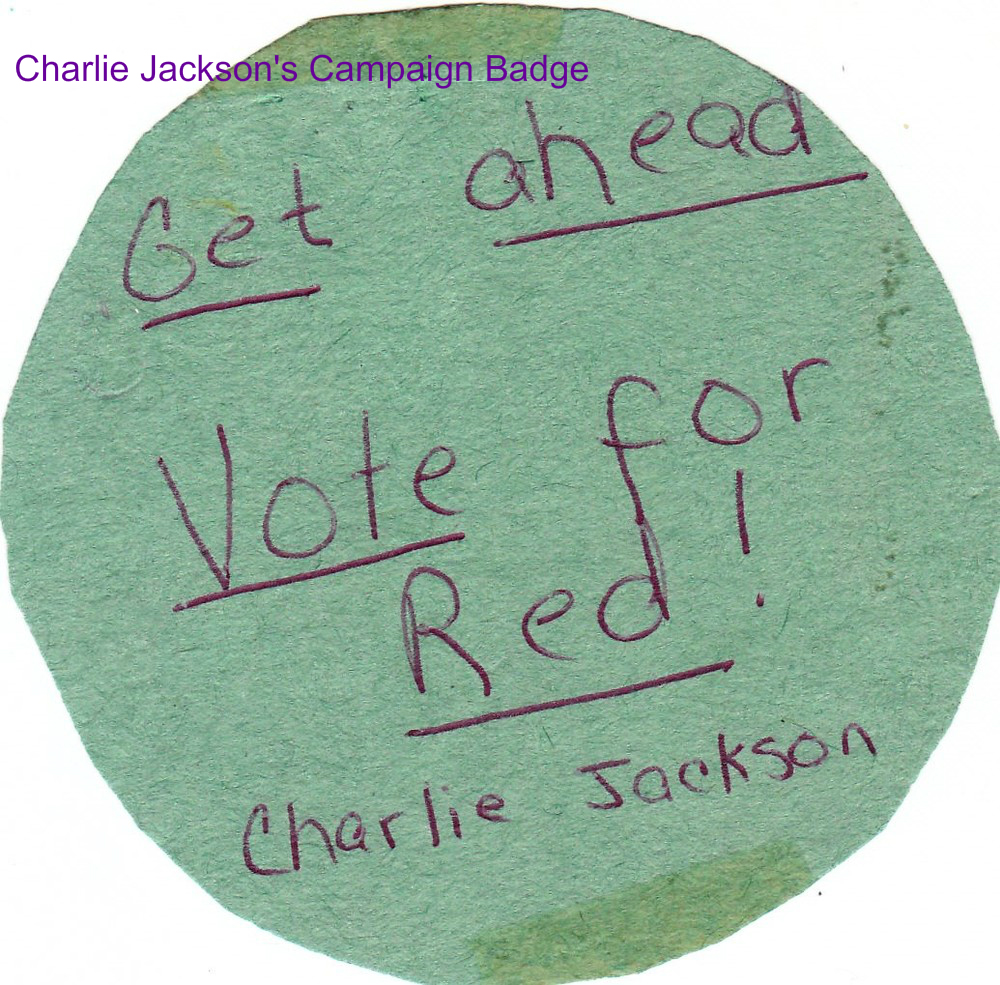 Charlie Jackson's Campaign Badge
Get ahead
Vote for
Red!
Charlie Jackson